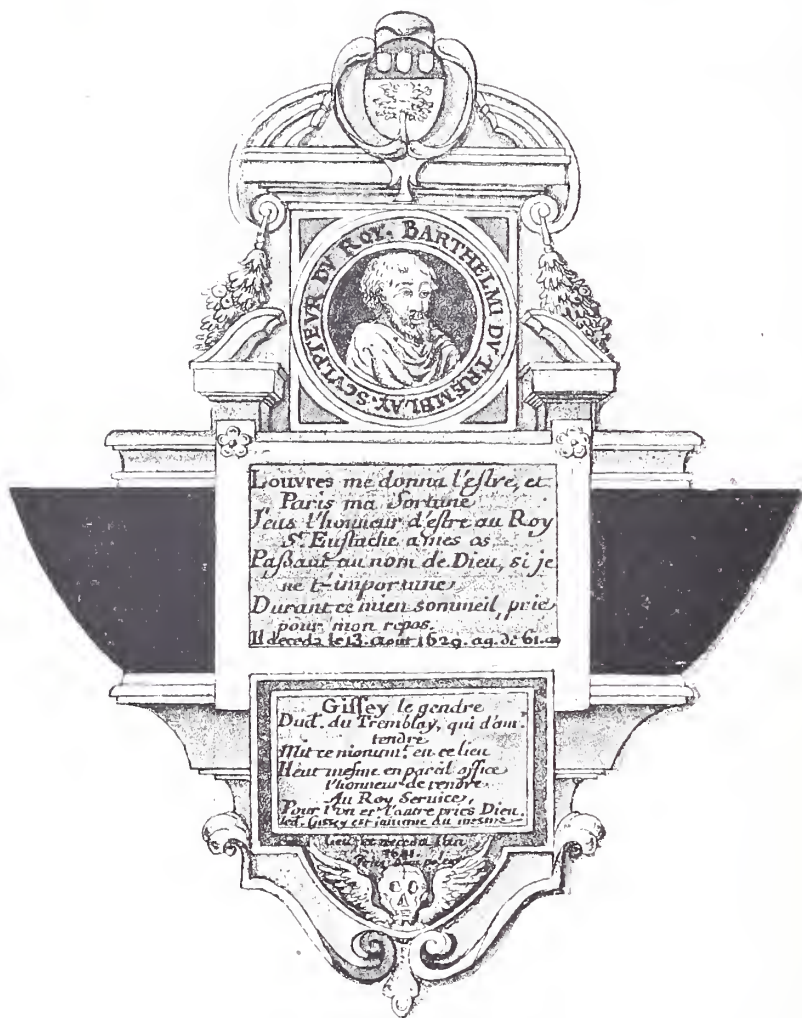 BARTHELMI DV TREMBLAY. SCVLPTEVR DV ROY.
Louvres me donna l'estre, et
Paris ma fortune
J'eus l'honneur d'estre au Roy
St. Eustache a mes os
Paßant au nom de Dieu, si je
ne t'importune
Durant ce mien sommeil, prie
pour mon repos.
Il deceda le 13. Aout 1629. ag. de 61. an
Gissey le gendre
Dud. du Tremblay, qui d'am.r
tendre
Mit ce monum.t en ce lieu
Heut mesme en paral office
l'honneur de rendre
Au Roy Service,
Pour l'vn et l'autre pries Dieu.
led. Gissey est
du mesme
et deceda